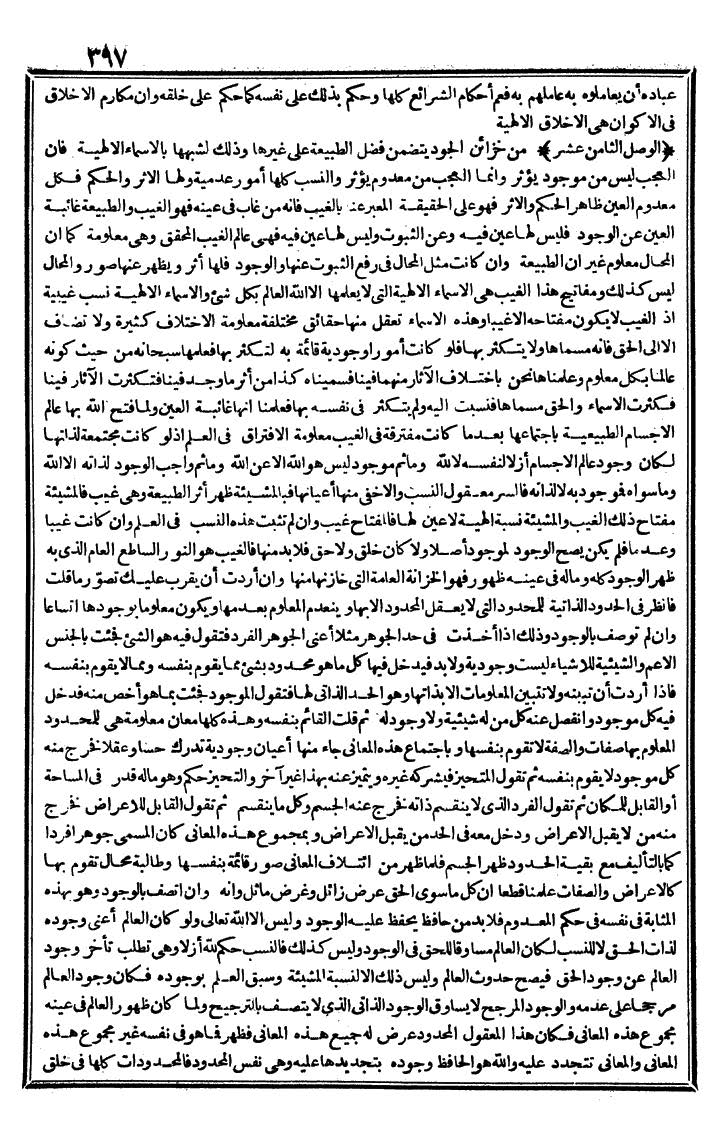 ٣٩٧
عباده أن يعاملوه به عاملهم به فعم أحكام الشرائع كلها وحكم بذلك على نفسه كما حكم على خلقه وان مكارم الاخلاق
فى الاكوان هى الاخلاق الالهية
﴿الوصل الثامن عشر﴾ من خزائن الجود يتضمن فضل الطبيعة على غيرها وذلك لشبهها بالاسماء الالهية فان
العجب ليس من موجود يؤثر وانما العجب من معدوم يؤثر والنسب كلها أمور عدمية ولها الاثر والحكم فكل
معدوم العين ظاهر الحكم والاثر فهو على الحقيقة المعبر عنه بالغيب فانه من غاب فى عينه فهو الغيب والطبيعة غائبة
العين عن الوجود فليس لها عين فيه وعن الثبوت وليس لها عين فيه فهى عالم الغيب المحقق وهى معلومة كما ان
المحال معلوم غير ان الطبيعة وان كانت مثل المحال فى رفع الثبوت عنها والوجود فلها أثر ويظهر عنها صور والمحال
ليس كذلك ومفاتيح هذا الغيب هى الاسماء الالهية التى لا يعلمها الا الله العالم بكل شئ والاسماء الالهية نسب غيبية
اذ الغيب لا يكون مفتاحه الا غيبا وهذه الاسماء تعقل منها حقائق مختلفة معلومة الاختلاف كثيرة ولا تضاف
الا الى الحق فانه مسماها ولا يتكثر بها فلو كانت أمورا وجودية قائمة به لتكثر بها فعلمها سبحانه من حيث كونه
عالما بكل معلوم وعلمناها نحن باختلاف الآثار منهما فينا فسميناه كذا من أثر ما وجد فينا فتكثرت الآثار فينا
فكثرت الاسماء والحق مسماها فنسبت اليه ولم يتكثر فى نفسه بها فعلمنا انها غائبة العين ولما فتح الله بها عالم
الاجسام الطبيعية باجتماعها بعد ما كانت مفترقة فى الغيب معلومة الافتراق فى العلم اذ لو كانت مجتمعة لذاتها
لكان وجود عالم الاجسام أزلا لنفسه لا لله وما ثم موجود ليس هو الله الا عن الله وما ثم واجب الوجود لذاته الا الله
وما سواه فموجود به لا لذاته فالسر معقول النسب والاخفى منها أعيانها فبالمشيئة ظهر أثر الطبيعة وهى غيب فالمشيئة
مفتاح ذلك الغيب والمشيئة نسبة الهية لا عين لها فالمفتاح غيب وان لم تثبت هذه النسب فى العلم وان كانت غيبا
وعدما فلم يكن يصح الوجود لموجود أصلا ولا كان خلق ولا حق فلا بد منها فالغيب هو النور الساطع العام الذى به
ظهر الوجود كله وماله فى عينه ظهور فهو الخزانة العامة التى خازنها منها وان أردت أن يقرب عليك تصور ما قلت
فانظر فى الحدود الذاتية للمحدود التى لا يعقل المحدود الا بها وينعدم المعلوم بعدمها ويكون معلوما بوجودها اتساعا
وان لم توصف بالوجود وذلك اذا أخذت فى حد الجوهر مثلا أعنى الجوهر الفرد فتقول فيه هو الشئ فجئت بالجنس
الاعم والشيئية للاشياء ليست وجودية ولا بد فيدخل فيها كل ما هو محدود بشئ مما يقوم بنفسه ومما لا يقوم بنفسه
فاذا أردت أن تبينه ولا تتبين المعلومات الا بذاتها وهو الحد الذاتى لها فتقول الموجود فجئت بما هو أخص منه فدخل
فيه كل موجود وانفصل عنه كل من له شيئية ولا وجود له ثم قلت القائم بنفسه وهذه كلها معان معلومة هى للمحدود
المعلوم بها صفات والصفة لا تقوم بنفسها وباجتماع هذه المعانى جاء منها أعيان وجودية تدرك حسا وعقلا فخرج منه
كل موجود لا يقوم بنفسه ثم تقول المتحيز فيشركه غيره ويتميز عنه بهذا غير آخر والتحيز حكم وهو ماله قدر فى المساحة
أو القابل للمكان ثم تقول الفرد الذى لا ينقسم ذاته فخرج عنه الجسم وكل ما ينقسم ثم تقول القابل للاعراض فخرج
منه من لا يقبل الاعراض ودخل معه فى الحد من يقبل الاعراض وبمجموع هذه المعانى كان المسمى جوهرا فردا
كما بالتأليف مع بقية الحدود ظهر الجسم فلما ظهر من ائتلاف المعانى صور قائمة بنفسها وطالبة محال تقوم بها
كالاعراض والصفات علمنا قطعا ان كل ما سوى الحق عرض زائل وغرض مائل وانه وان اتصف بالوجود وهو بهذه
المثابة فى نفسه فى حكم المعدوم فلا بد من حافظ يحفظ عليه الوجود وليس الا الله تعالى ولو كان العالم أعنى وجوده
لذات الحق لا للنسب لكان العالم مساوقا للحق فى الوجود وليس كذلك فالنسب حكم لله أزلا وهى تطلب تأخر وجود
العالم عن وجود الحق فيصح حدوث العالم وليس ذلك الا لنسبة المشيئة وسبق العلم بوجوده فكان وجود العالم
مرجحا على عدمه والوجود المرجح لا يساوق الوجود الذاتى الذى لا يتصف بالترجيح ولما كان ظهور العالم فى عينه
مجموع هذه المعانى فكان هذا المعقول المحدود عرض له جميع هذه المعانى فظهر فما هو فى نفسه غير مجموع هذه
المعانى والمعانى تتجدد عليه والله هو الحافظ وجوده بتجديدها عليه وهى نفس المحدود فالمحدودات كلها فى خلق